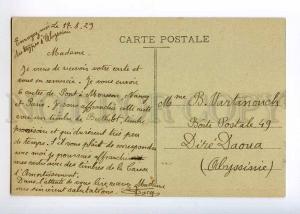 le 14.8.29
CARTE POSTALE
Madame,
Je viens de recevoir votre carte et
vous en remercie. Je vous envoie
6 cartes de Pont à Mousson, Nancy
et Paris. J'ai affranchi cette
avec un timbre de
et qui durent très peu
de temps. S'il vous plaît de correspondre
avec moi je pourrais affranchir
mes cartes avec des timbres de la Caisse
d'Amortissement.
Dans l'attente de vous lire
mes sincères salutations.
Mme B. Martanovich
Boite Postale 49
Dire Daoua
(Abyssinie)